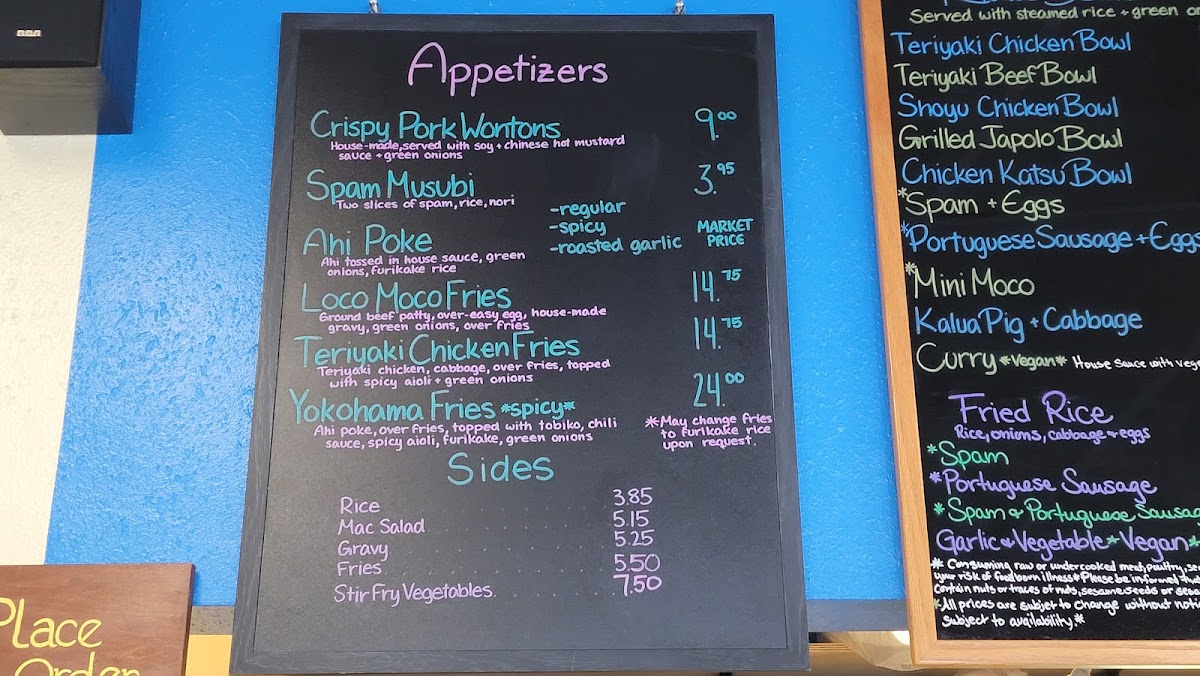 Appetizers
Crispy Pork Wontons 9.00
House-made, served with soy + chinese hot mustard
sauce + green onions
Spam Musubi 3.95
Two slices of spam, rice, nori
-regular
-spicy
-roasted garlic
Ahi Poke MARKET PRICE
Ahi tossed in house sauce, green
onions, furikake rice
Loco Moco Fries 14.75
Ground beef patty, over-easy egg, house-made
gravy, green onions, over fries
Teriyaki Chicken Fries 14.75
Teriyaki chicken, cabbage, over fries, topped
with spicy aioli + green onions
Yokohama Fries *spicy* 24.00
Ahi poke, over fries, topped with tobiko, chili
sauce, spicy aioli, furikake, green onions
*May change fries
to furikake rice
upon request.
Sides
Rice 3.85
Mac Salad 5.15
Gravy 5.25
Fries 5.50
Stir Fry Vegetables 7.50
Served with steamed rice + green
Teriyaki Chicken Bowl
Teriyaki Beef Bowl
Shoyu Chicken Bowl
Grilled Japolo Bowl
Chicken Katsu Bowl
*Spam + Eggs
*Portuguese Sausage + Eggs
*Mini Moco
Kalua Pig + Cabbage
Curry *Vegan* House Sauce with
Fried Rice
Rice, onions, cabbage + eggs
*Spam
*Portuguese Sausage
*Spam + Portuguese
Garlic + Vegetable *Vegan*
* Consuming raw or undercooked meat, poultry,
your risk of foodborn illness * Please be informed
contain nuts or traces of nuts, sesame seeds or
*All prices are subject to change without
subject to availability.*
Place
Order